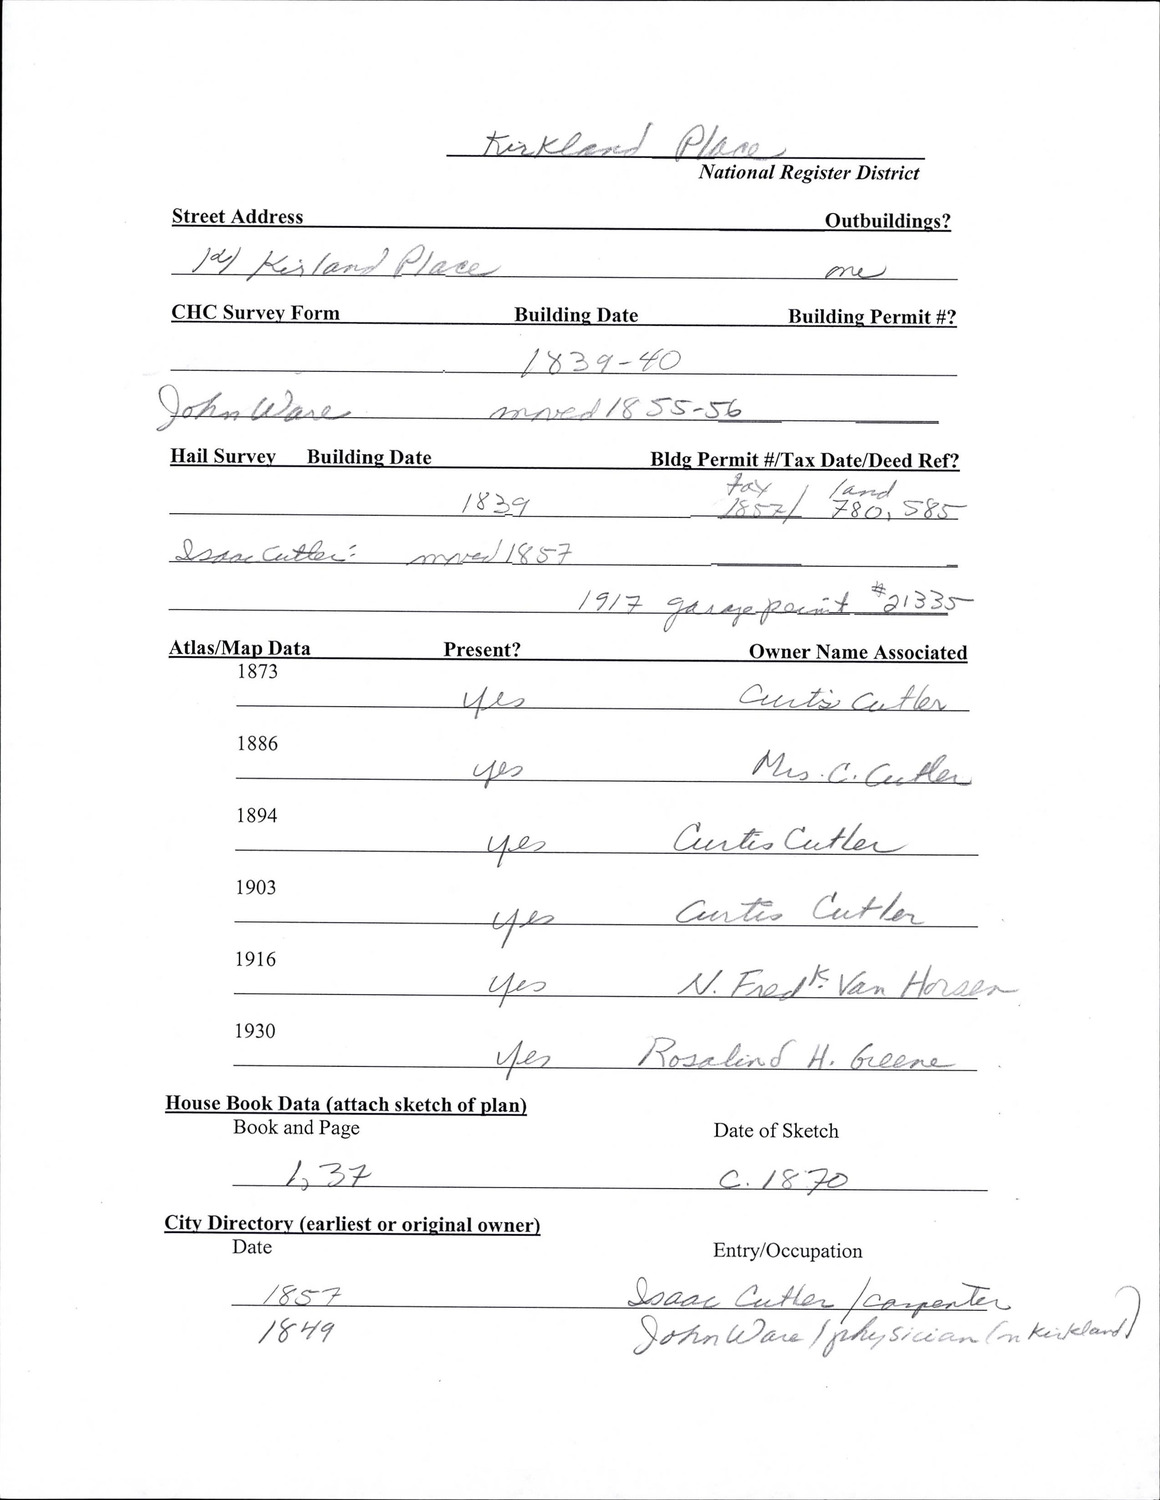 Kirkland Place
National Register District
Street Address Outbuildings?
Kirland Place one
CHC Survey Form Building Date Building Permit #?
1839-40
John Ware moved 1855-56
Hail Survey Building Date Bldg Permit #/Tax Date/Deed Ref?
tax land
1839 1857/ 780, 585
Isaac Cutler: moved 1857
1917 garage permit #21335
Atlas/Map Data Present? Owner Name Associated
1873
yes Curtis Cutler
1886
yes Mrs. C. Cutler
1894
yes Curtis Cutler
1903
yes Curtis Cutler
1916
yes N. Fredk. Van Horsen
1930
yes Rosalind H. Greene
House Book Data (attach sketch of plan)
Book and Page Date of Sketch
1, 37 C. 1870
City Directory (earliest or original owner)
Date Entry/Occupation
1857 Isaac Cutler / carpenter
1849 John Ware / physician (on Kirkland)